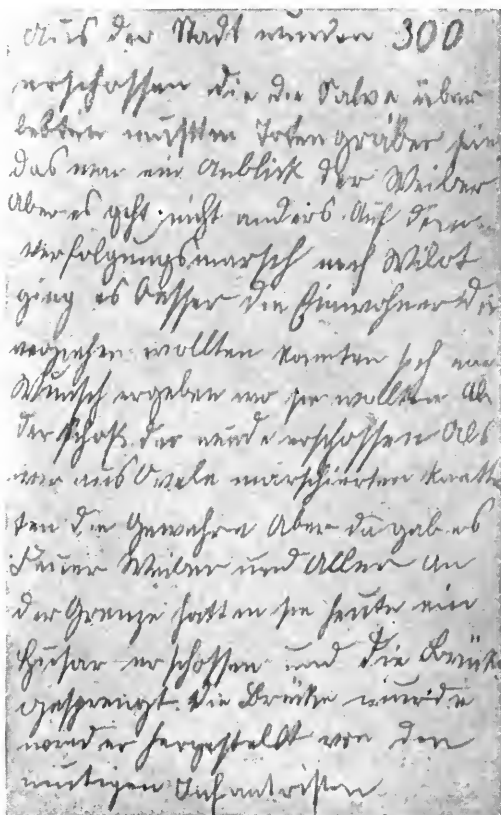 Aus der Stadt wurden 300
erschossen die die Salve über
lebten mußten Totengräber sein
das war ein Anblick der Weiber
Aber es geht nicht anders. Auf dem
verfolgungsmarsch nach Wilot
ging es besser die Einwohner die
verziehen wollten konnten sich nach
Wunsch ergeben wo sie wollten Ab
der schoß der wurde erschossen Als
wir aus Owele marschierten knatt
ten die Gewehre Aber da gab es
Feuer Weiber und Alles An
der Grenze hatten sie heute ein
Husar erschossen und die Brücke
gesprengt. die Brücke wurde
wieder hergestellt von den
mutigen Infantristen